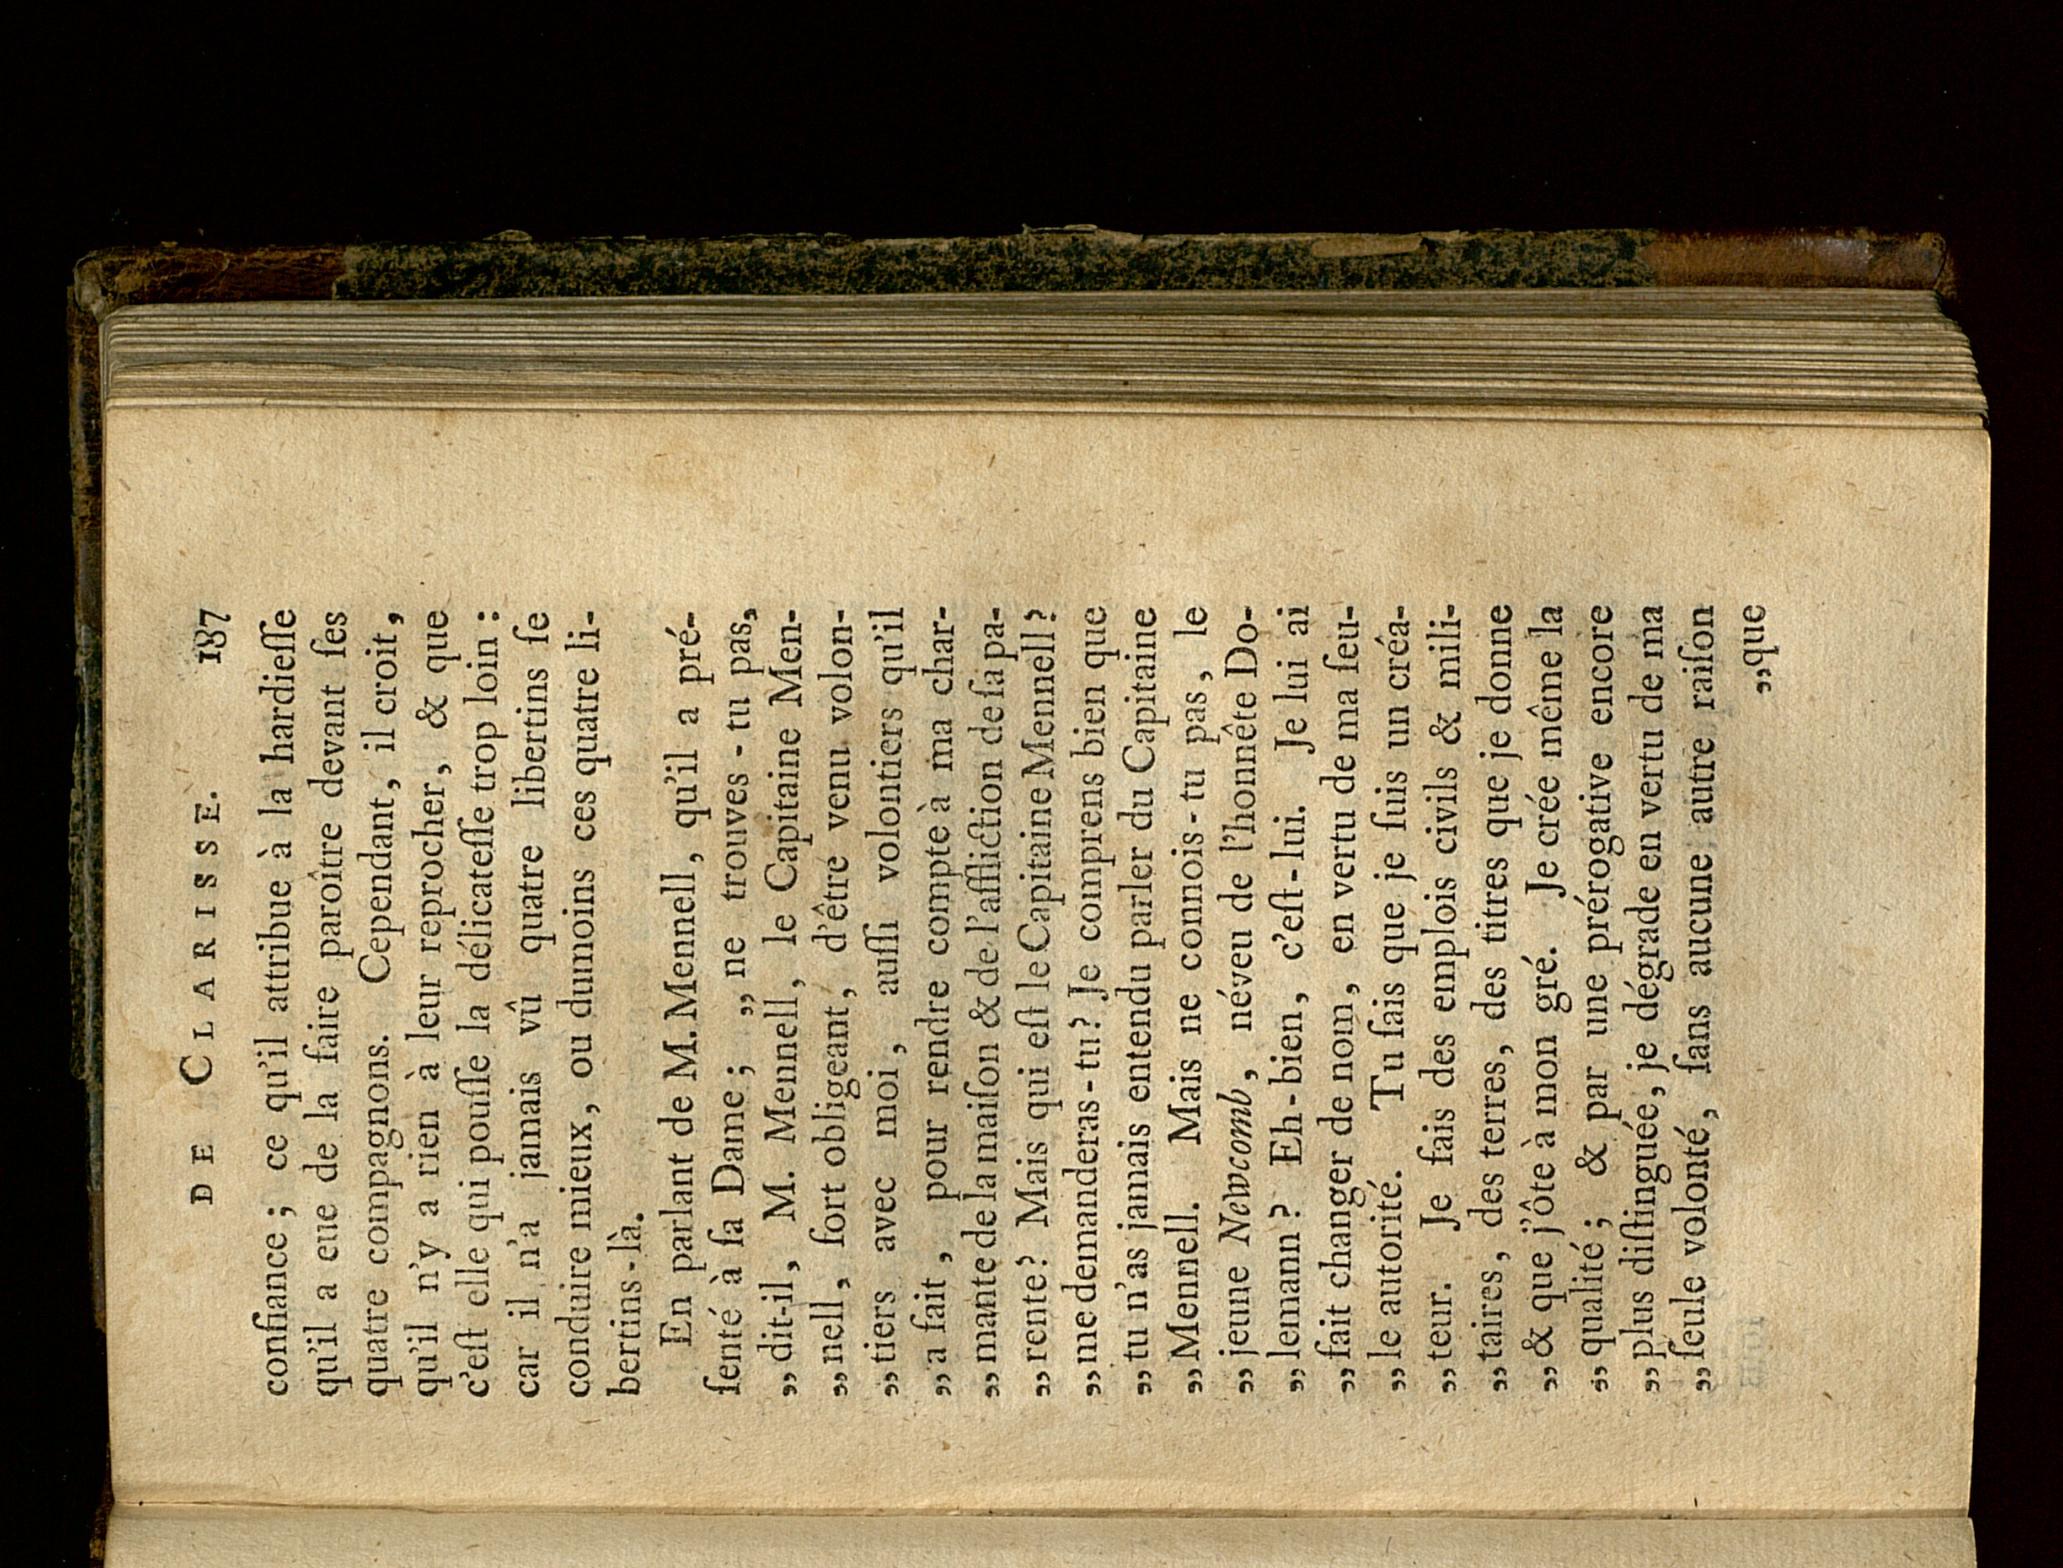 DE CLARISSE. 187
confiance; ce qu'il attribue à la hardieſſe
qu'il a eue de la faire paroître devant ſes
quatre compagnons. Cependant, il croit,
qu'il n'y a rien à leur reprocher, & que
c'eſt elle qui pouſſe la délicateſſe trop loin:
car il n'a jamais vû quatre libertins ſe
conduire mieux, ou dumoins ces quatre li-
bertins-là.
En parlant de M. Mennell, qu'il a pré-
ſenté à ſa Dame; „ne trouves-tu pas,
„dit-il, M. Mennell, le Capitaine Men-
„nell, fort obligeant, d'être venu volon-
„tiers avec moi, auſſi volontiers qu'il
„a fait, pour rendre compte à ma char-
„mante de la maiſon & de l'affliction de ſa pa-
„rente? Mais qui eſt le Capitaine Mennell?
„me demanderas-tu? Je comprens bien que
„tu n'as jamais entendu parler du Capitaine
„Mennell. Mais ne connois-tu pas, le
„jeune Newcomb, néveu de l'honnête Do-
„lemann? Eh-bien, c'eſt-lui. Je lui ai
„fait changer de nom, en vertu de ma ſeu-
„le autorité. Tu ſais que je ſuis un créa-
„teur. Je fais des emplois civils & mili-
„taires, des terres, des titres que je donne
„& que j'ôte à mon gré. Je crée même la
„qualité; & par une prérogative encore
„plus diſtinguée, je dégrade en vertu de ma
„ſeule volonté, ſans aucune autre raiſon
„que